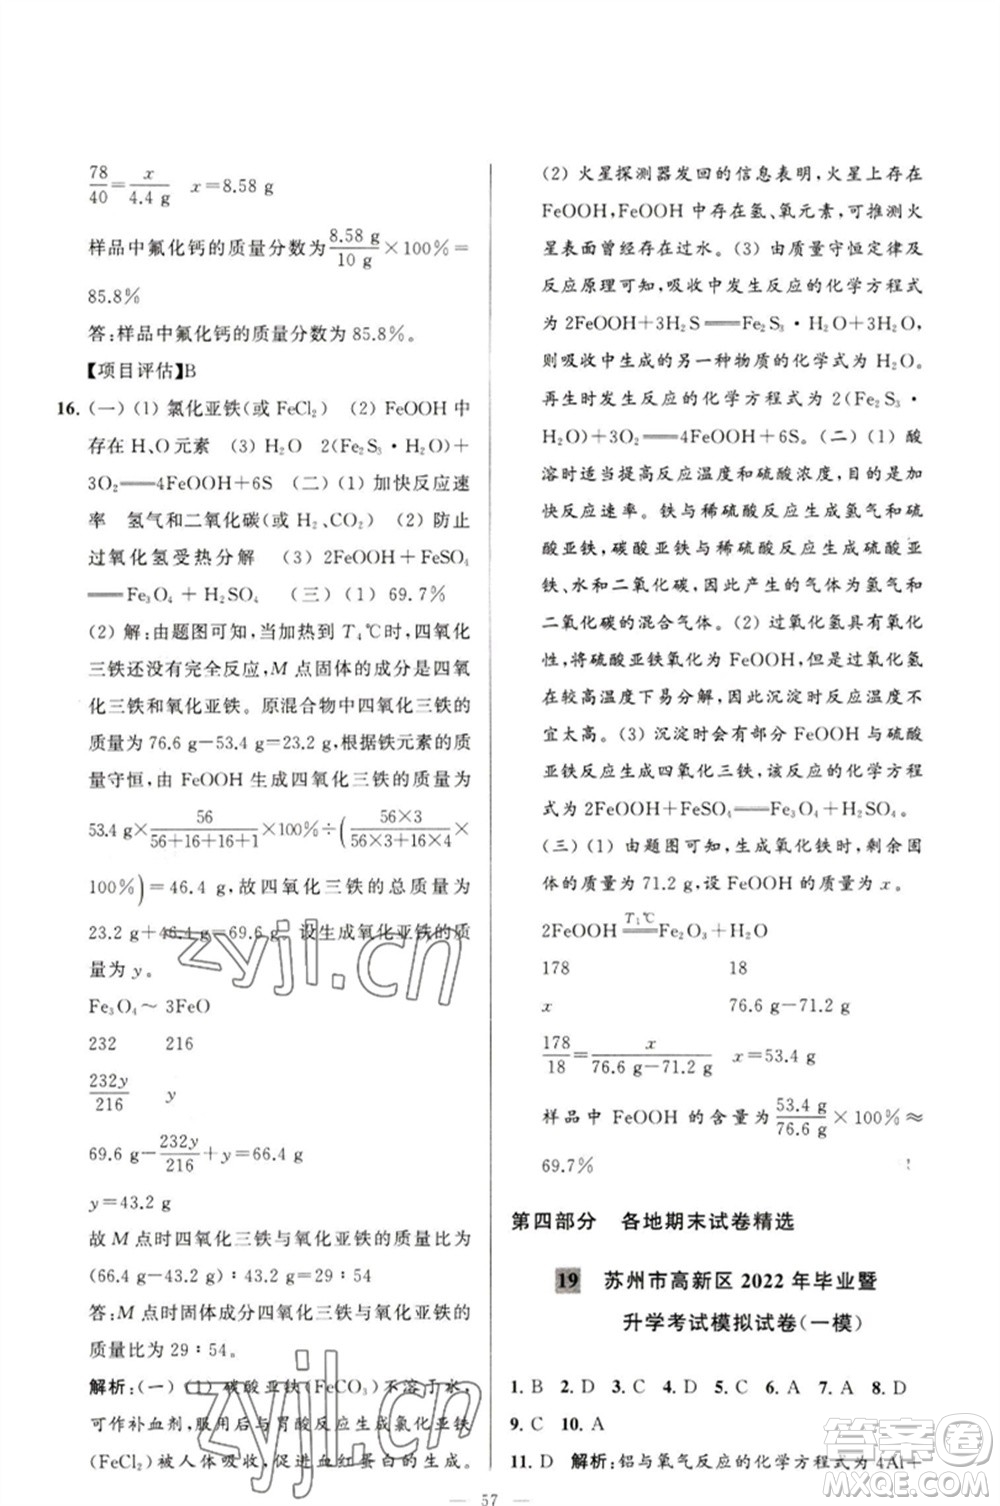 78/40=x/4.4 g　x=8.58 g
样品中氟化钙的质量分数为8.58 g/10 g×100%=
85.8%
答:样品中氟化钙的质量分数为85.8%。
【项目评估】B
16. (一)(1) 氯化亚铁(或 FeCl₂)　(2) FeOOH 中
存在 H、O 元素　(3) H₂O　2(Fe₂S₃·H₂O)+
3O₂══4FeOOH+6S　(二)(1) 加快反应速
率　氢气和二氧化碳(或 H₂、CO₂)　(2) 防止
过氧化氢受热分解　(3) 2FeOOH+FeSO₄
══Fe₃O₄+H₂SO₄　(三)(1) 69.7%
(2) 解:由题图可知,当加热到 T₄℃时,四氧化
三铁还没有完全反应,M 点固体的成分是四氧
化三铁和氧化亚铁。原混合物中四氧化三铁的
质量为 76.6 g-53.4 g=23.2 g,根据铁元素的
质量守恒,由 FeOOH 生成四氧化三铁的质量为
53.4 g×56/(56+16+16+1)×100%÷(56×3/(56×3+16×4)×
100%)=46.4 g,故四氧化三铁的总质量为
23.2 g+46.4 g=69.6 g。设生成氧化亚铁的质
量为 y。
Fe₃O₄~3FeO
232　216
232y/216　y
69.6 g-232y/216+y=66.4 g
y=43.2 g
故 M 点时四氧化三铁与氧化亚铁的质量比为
(66.4 g-43.2 g):43.2 g=29:54
答:M 点时固体成分四氧化三铁与氧化亚铁的
质量比为 29:54。
解析:(一)(1) 碳酸亚铁(FeCO₃)不溶于水,
可作补血剂,服用后与胃酸反应生成氯化亚铁
(FeCl₂)被人体吸收,促进血红蛋白的生成。
(2) 火星探测器发回的信息表明,火星上存在
FeOOH,FeOOH 中存在氢、氧元素,可推测火
星表面曾经存在过水。(3) 由质量守恒定律及
反应原理可知,吸收中发生反应的化学方程式
为 2FeOOH+3H₂S══Fe₂S₃·H₂O+3H₂O,
则吸收中生成的另一种物质的化学式为 H₂O。
再生时发生反应的化学方程式为 2(Fe₂S₃·
H₂O)+3O₂══4FeOOH+6S。(二)(1) 酸
溶时适当提高反应温度和硫酸浓度,目的是加
快反应速率。铁与稀硫酸反应生成氢气和
硫酸亚铁,碳酸亚铁与稀硫酸反应生成硫酸亚
铁、水和二氧化碳,因此产生的气体为氢气和
二氧化碳的混合气体。(2) 过氧化氢具有氧化
性,将硫酸亚铁氧化为 FeOOH,而过氧化氢
在较高温度下易分解,因此沉淀时反应温度不
宜太高。(3) 沉淀时会有部分 FeOOH 与硫酸
亚铁反应生成四氧化三铁,反应的化学方程
式为 2FeOOH+FeSO₄══Fe₃O₄+H₂SO₄。
(三)(1) 由题图可知,生成氧化铁时,剩余固
体的质量为 71.2 g,设 FeOOH 的质量为 x。
2FeOOH═(T₁℃)═Fe₂O₃+H₂O
178　18
x　76.6 g-71.2 g
178/18=x/(76.6 g-71.2 g)　x=53.4 g
样品中 FeOOH 的含量为53.4 g/76.6 g×100%≈
69.7%
第四部分　各地期末试卷精选
19　苏州市高新区 2022 年毕业暨
升学考试模拟试卷(一模)
1. B　2. D　3. C　4. C　5. D　6. A　7. A　8. D
9. C　10. A
11. D　解析:铝与氧气反应的化学方程式为 4Al+
— 57 —
zyjl.cn
zyjl.cn
答案卷
MXQE.COM